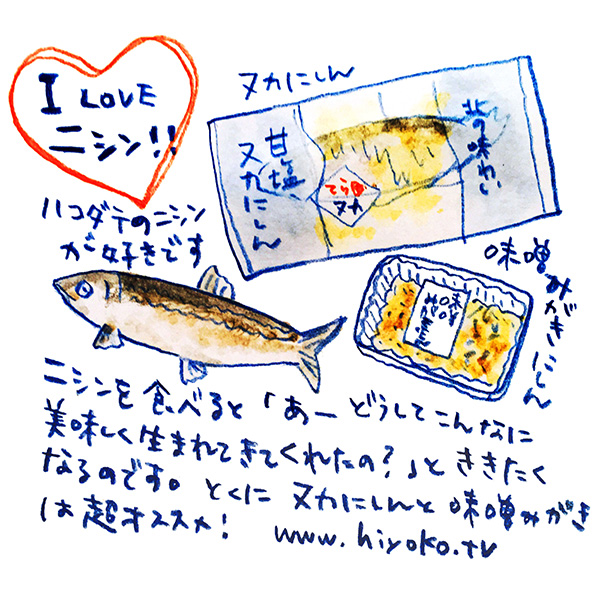 I LOVE
ニシン!!
ヌカにしん
甘塩
ヌカにしん
北の味わい
てら田
ヌカ
ハコダテのニシン
が好きです
味噌みがきにしん
ニシンを食べると「あー どうしてこんなに
美味しく生まれてきてくれたの?」とききたく
なるのです。とくに ヌカにしんと味噌みがき
は超オススメ! www.hiyoko.tv